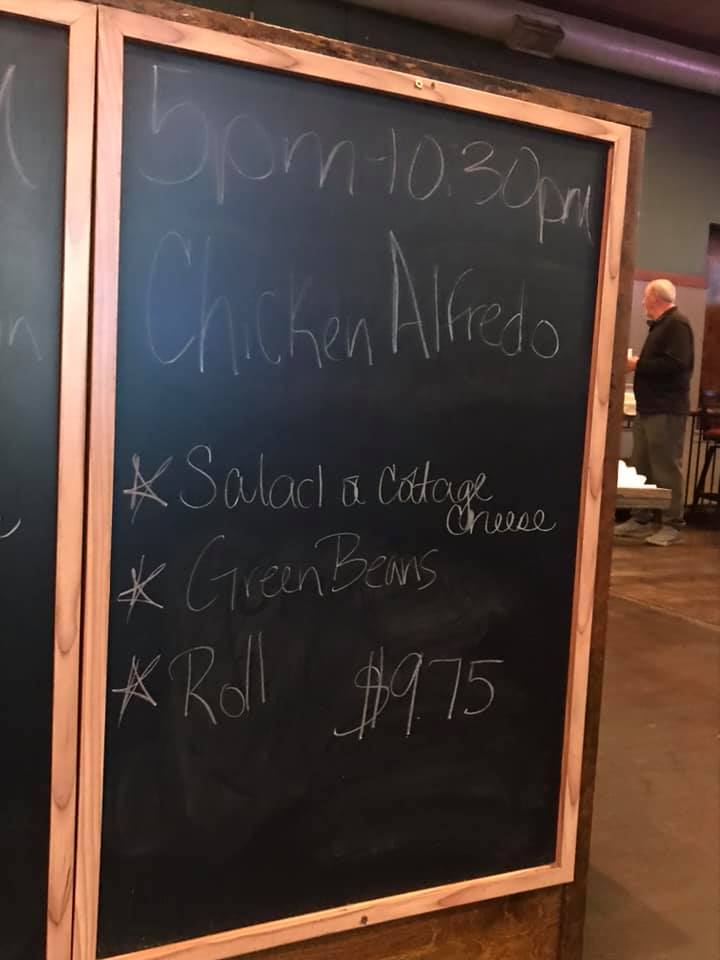 5pm-10:30pm
Chicken Alfredo
* Salad or Cottage
Cheese
* Green Beans
* Roll $9.75